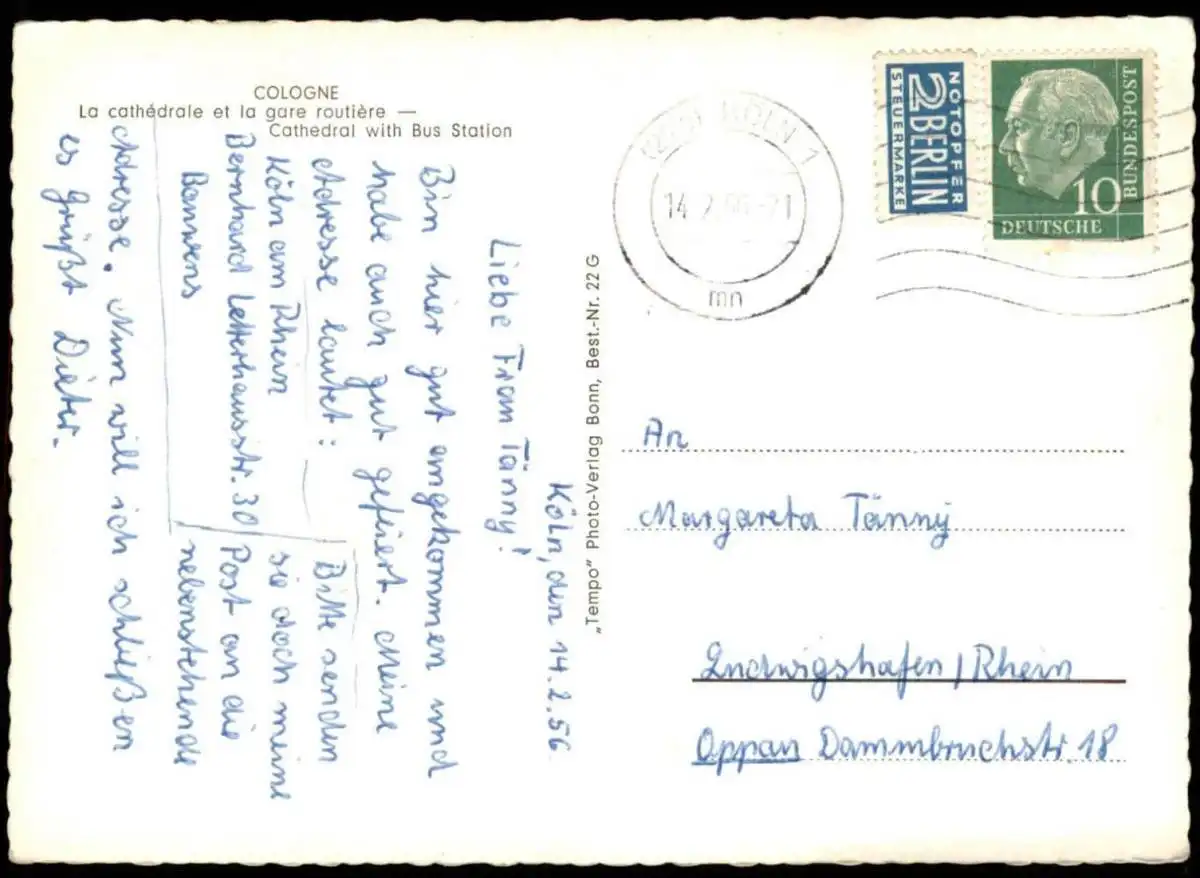 COLOGNE
La cathédrale et la gare routière —
Cathedral with Bus Station
Köln, den 14.2.56
Liebe Frau Tänny!
Bin hier gut angekommen und
habe auch gut gefeiert. Meine
Adresse lautet:
Köln am Rhein
Bernhard Letterhausstr. 30
Bannens
Bitte senden
sie doch meine
Post an die
nebenstehende
Adresse. Nun will ich schließen
es Grüßt Dieter.
„Tempo" Photo-Verlag Bonn, Best.-Nr. 22 G
KÖLN 1
14.2.56-21
mn
NOTOPFER
2 BERLIN
STEUERMARKE
10
DEUTSCHE
BUNDESPOST
An
Margareta Tänny
Ludwigshafen/Rhein
Oppau Dammbruchstr. 18